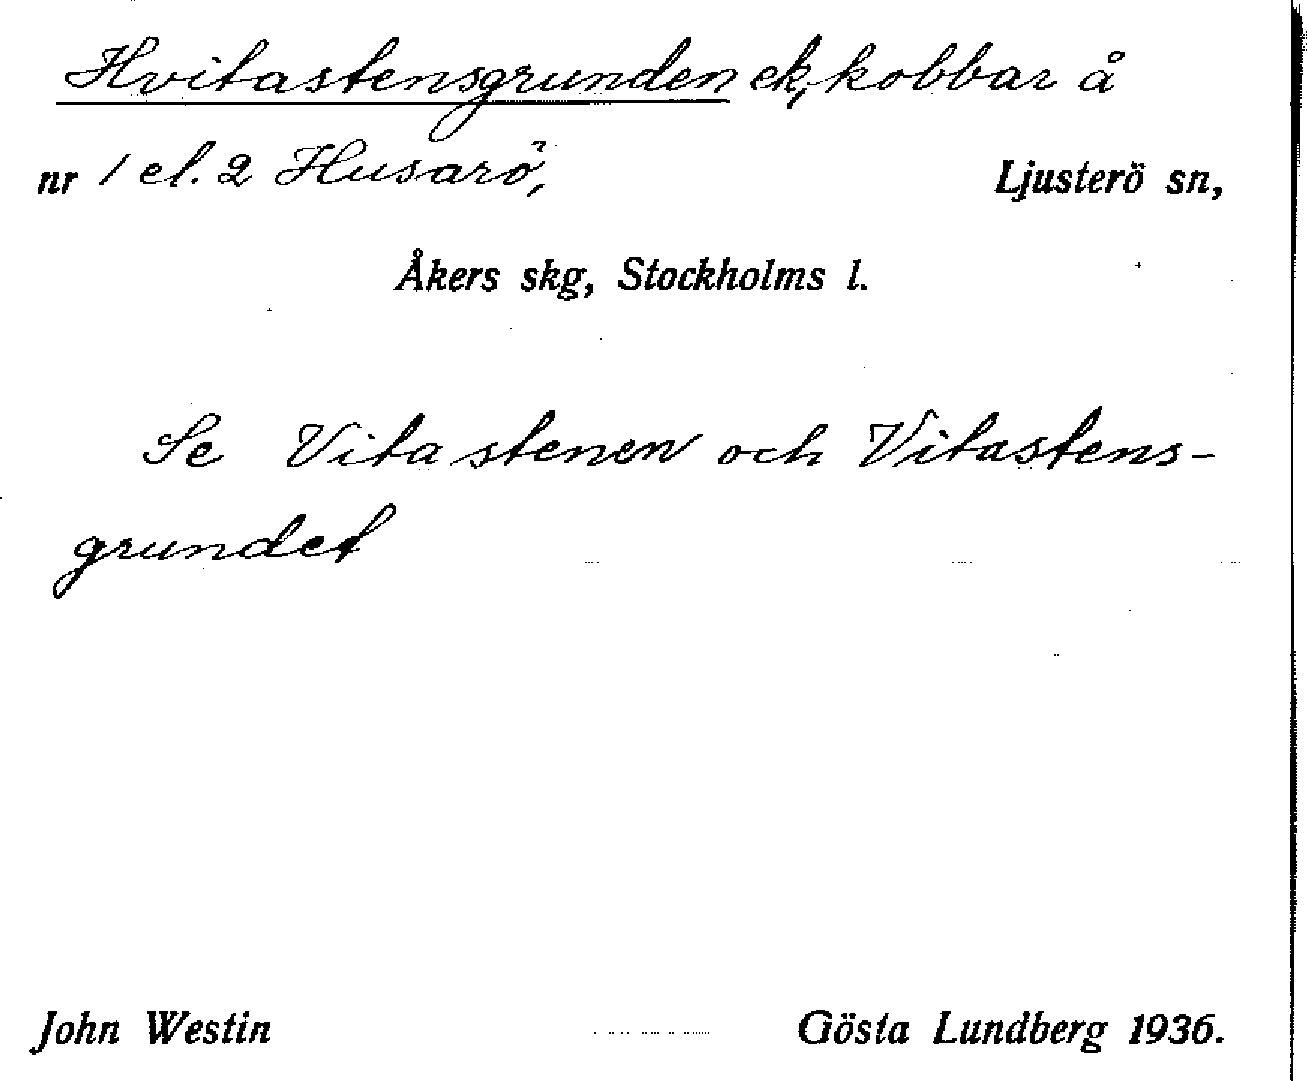 Hvitastensgrunden ek, kobbar å
nr 1 el. 2 Husarö, Ljusterö sn,
Åkers skg, Stockholms l.
Se Vitastenen och Vitastens-
grundet
John Westin Gösta Lundberg 1936.